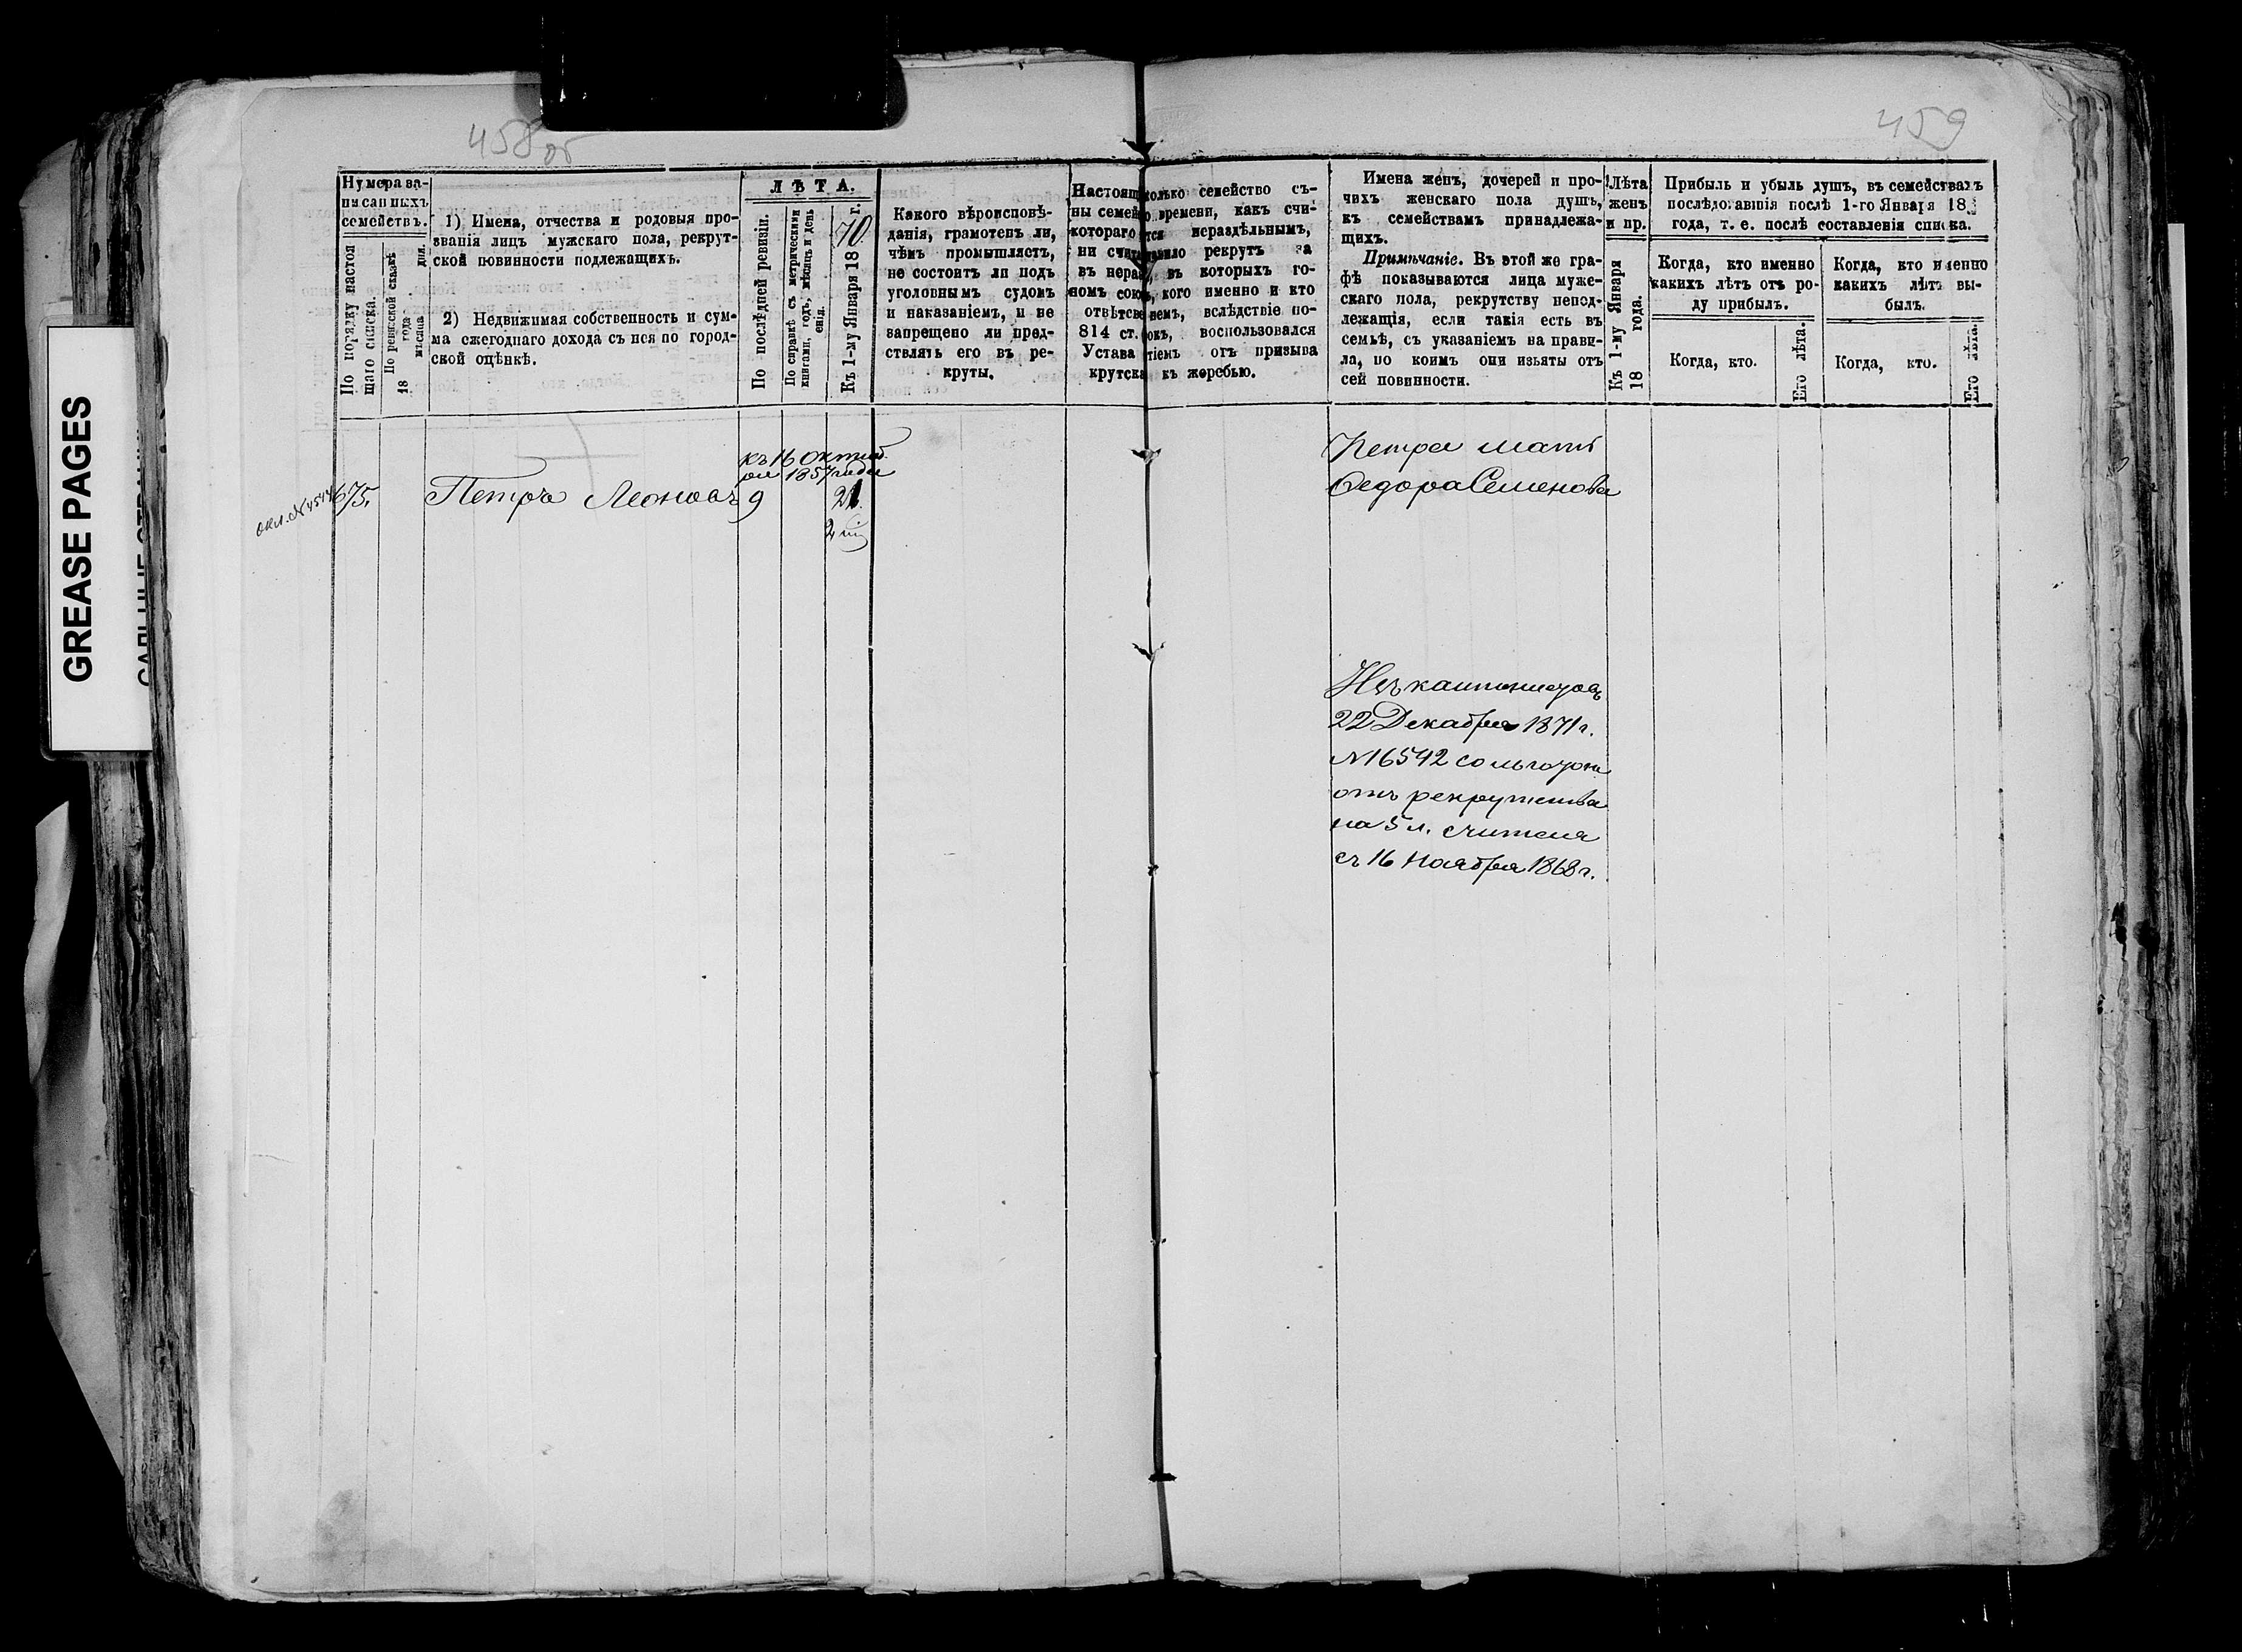 458 об
459
GREASE PAGES
Нумера за-
писанныхъ
семействъ.
По порядку настоя
щаго списка.
По ревизской сказкѣ
18 года
мѣсяца дня.
1) Имена, отчества и родовыя про-
званія лицъ мужскаго пола, рекрут-
ской повинности подлежащихъ.
2) Недвижимая собственность и сум-
ма ежегоднаго дохода съ нея по город-
ской оцѣнкѣ.
ЛѢТА.
По послѣдней ревизіи.
По справкѣ съ метрическими
книгами, годъ, мѣсяцъ и день
Къ 1-му Января 1870 г.
Какого вѣроисповѣ-
данія, грамотенъ ли,
чѣмъ промышляетъ,
не состоитъ ли подъ
уголовнымъ судомъ
и наказаніемъ, и не
запрещено ли пред-
ствлять его въ ре-
круты.
Настоящ
ны семей
котораго
ни счита
въ нераз
номъ сою
отвѣтсве
814 ст.
Устава
крутска
колько семейство съ-
о времени, какъ счи-
тся нераздѣльнымъ,
авило рекрутъ за
, въ которыхъ го-
, кого именно и кто
немъ, вслѣдствіе по-
окъ, воспользовался
тіемъ отъ призыва
къ жеребью.
Имена женъ, дочерей и про-
чихъ женскаго пола душъ,
къ семействамъ принадлежа-
щихъ.
Примѣчаніе. Въ этой же гра-
фѣ показываются лица муже-
скаго пола, рекрутству непод-
лежащія, если такія есть въ
семьѣ, съ указаніемъ на прави-
ла, по коимъ они изьяты отъ
сей повинности.
Лѣта
женъ
и пр.
Къ 1-му Января
18 года.
Прибыль и убыль душъ, въ семействахъ
послѣдовавшія послѣ 1-го Января 18
года, т. е. послѣ составленія списка.
Когда, кто именно
какихъ лѣтъ отъ ро-
ду прибылъ.
Когда, кто именно
какихъ лѣтъ вы-
былъ.
Когда, кто.
Его лѣта.
Когда, кто.
Его лѣта.
къ 16 октяб
ря 1857 года
675.
Петръ Леоновъ
9
21.
Петра мать
Федора Семенова
Изъ кантонистовъ
22 Декабря 1871 г.
№ 16542 со льготою
отъ рекрутства
на 5 л. считая
съ 16 Ноября 1868 г.